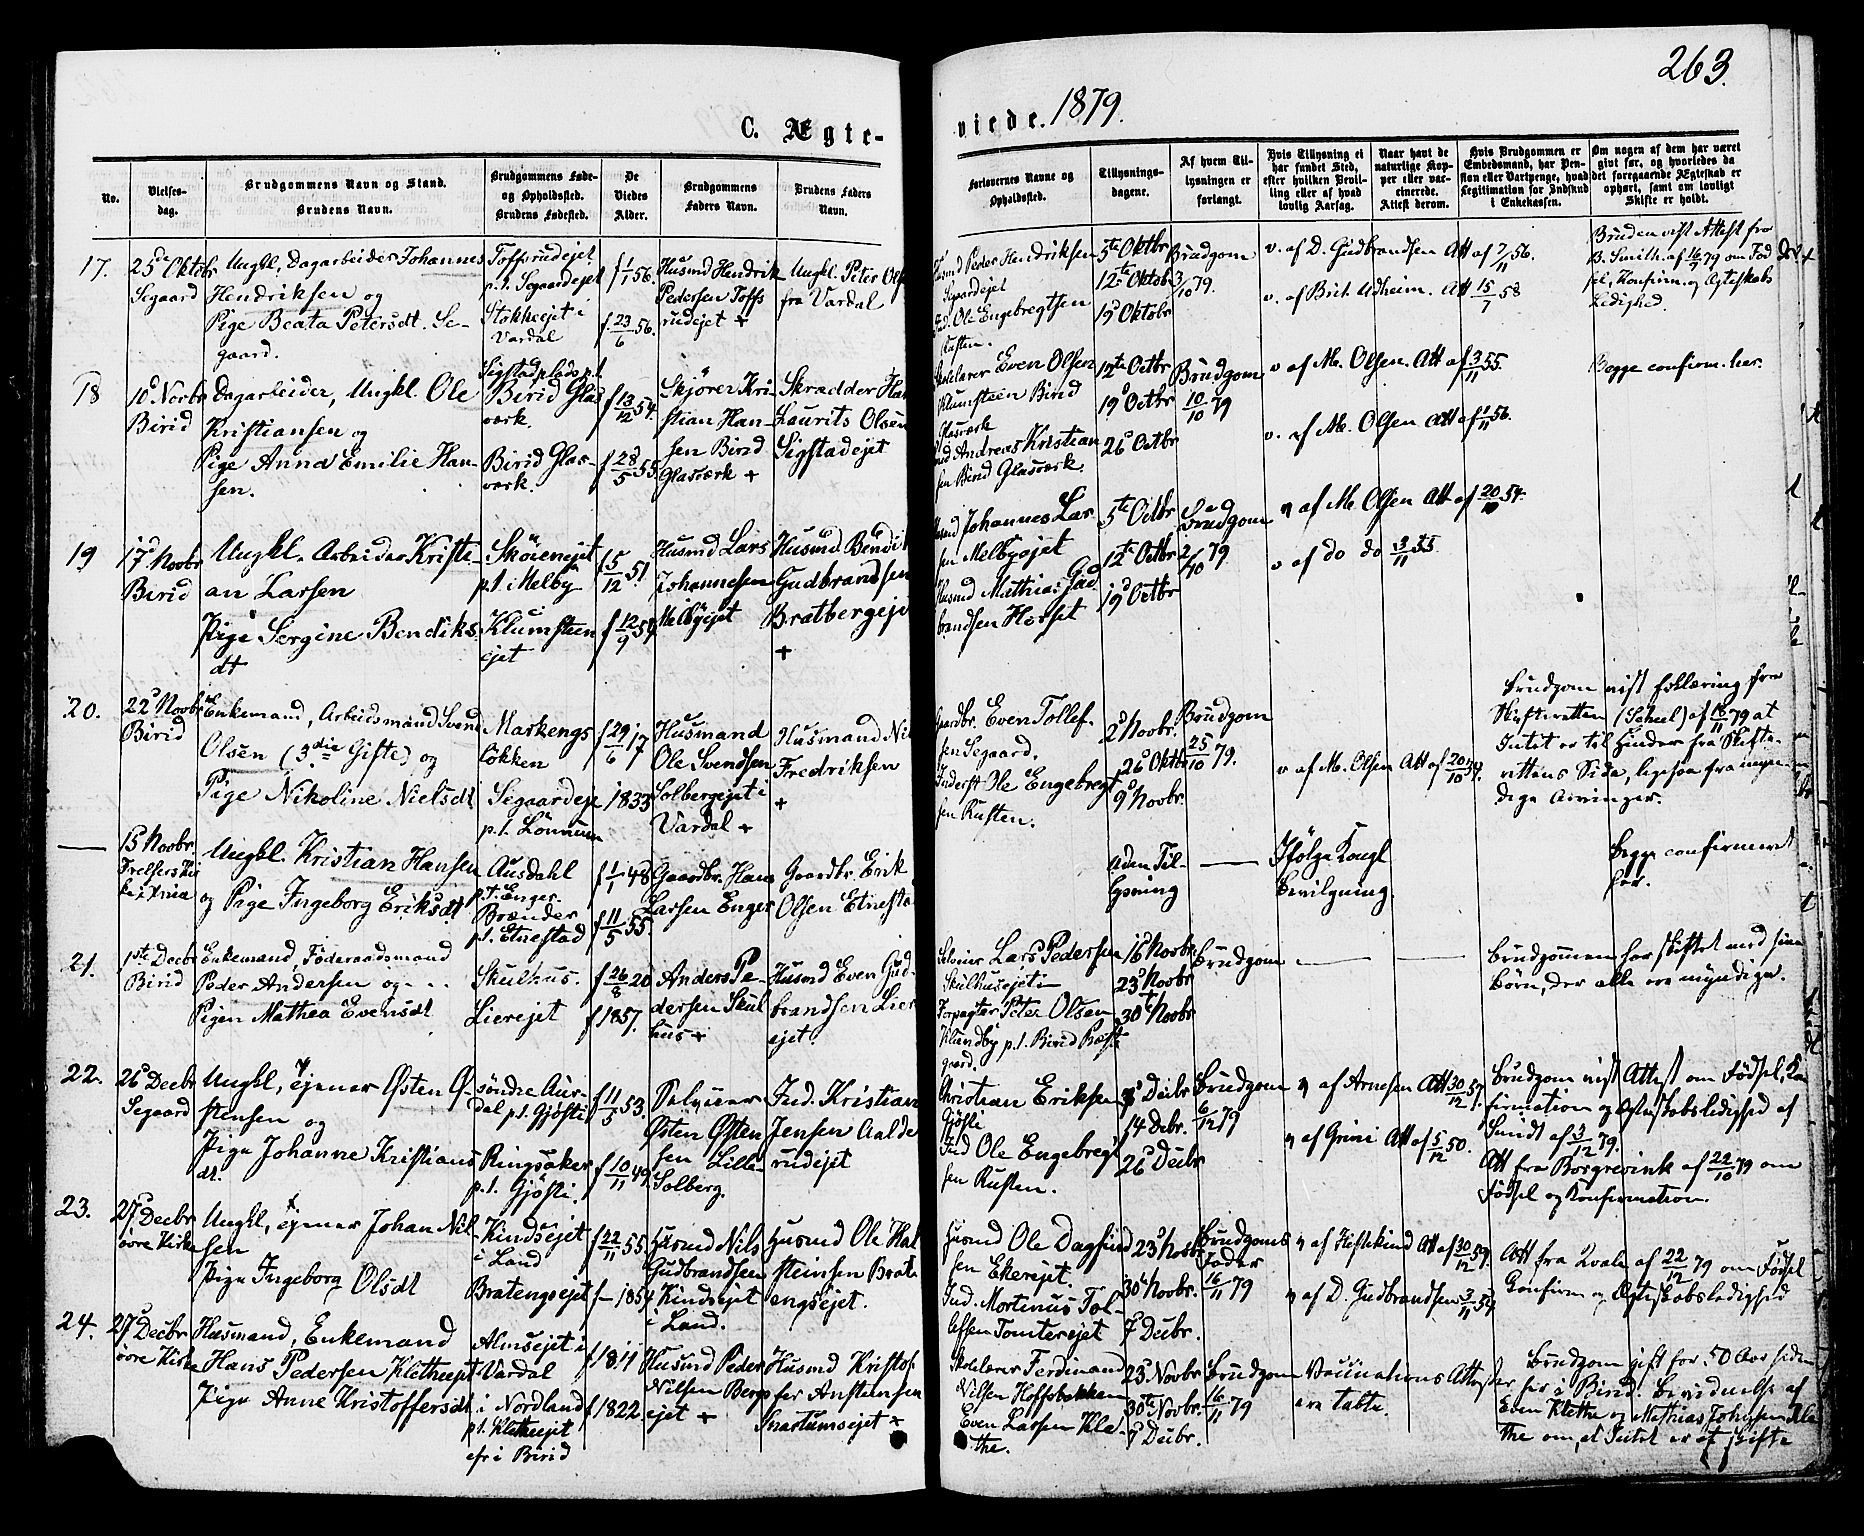 263.
C. Ægte-
viede. 1879.
No.
Vielses-
dag.
Brudgommens Navn og Stand.
Brudens Navn.
Brudgommens Føde-
og Opholdssted.
Brudens Fødested.
De
Viedes
Alder.
Brudgommens
Faders Navn.
Brudens Faders
Navn.
Forlovernes Navne og
Opholdssted.
Tillysnings-
dagene.
Af hvem Til-
lysningen er
forlangt.
Hvis Tillysning ei
har fundet Sted,
efter hvilken Bevil-
ling eller af hvad
lovlig Aarsag.
Naar havt de
naturlige Kop-
per eller vac-
cinerede.
Attest derom.
Hvis Brudgommen er
Embedsmand, har Pen-
sion eller Vartpenge, hvad
Legitimation for Indskud
i Enkekassen.
Om nogen af dem har været
givt før, og hvorledes da
det foregaaende Ægteskab er
ophørt, samt om lovligt
Skifte er holdt.
17.
25d Oktbr
Segaard
Ungkl, Dagarbeider Johannes
Hendriksen og
Pige Beata Petersdt. Se-
gaard.
Toffsrudejet
p.t. Segaardejet
Stokkeejet i
Vardal
f 1/1 56.
f. 23/6 56.
Husmd Hendrik
Pedersen Toffs
rudejet +
Ungkl. Peter Ols
fra Vardal
Husmd Peder Hendriksen
Segaardejet
Ind. Ole Engebregtsen
Rusten.
5te Oktbr
12te Oktobr
19d Oktobr
Brudgom
3/10 79.
v. af D. Gudbrandsen Att af 7/11 56.
v. af Brit. Udheim. Att 15/7 58
Bruden vist Attest fra
B. Smith af 16/7 79 om Fød
sel, Konfirm. og Ægteskabs
Ledighed.
18
10d Novbr
Birid
Dagarbeider, Ungkl. Ole
Kristiansen og
Pige Anna Emilie Han-
sen.
Sigstadplads p.t.
Birid Glas
værk.
Birid Glas-
værk.
f 13/12 54.
f 28/5 55.
Skjører Kri-
stian Han-
sen Birid
Glasværk +
Skrædder Han
Laurits Olsen
Sigstadejet
Skolelærer Even Olsen
Klumsteen Birid
Glasværk
Andreas Kristian
sen Birid Glasværk.
12te Octbr
19d Octbr
26d Octbr
Brudgom
10/10 79
v af M. Olsen. Att af 3/11 55.
v. af M. Olsen Att af 1/11 56.
Begge confirm. her.
19
17d Novbr
Birid
Ungkl. Arbeider Kristi-
an Larsen
Pige Sergine Bendiks
dt
Skøienejet
p.t. i Melby
Klumsteen
ejet
f 5/12 51.
f 12/9 59.
Husmd Lars
Johannesen
Melbyejet
Husmd. Bendik
Gudbrandsen
Bratbergejet
+
Husmd Johannes Lar
sen Melbyejet
Husmd Mathias Gud
brandsen Hørset
5te Octbr
12te Octbr
19d Octbr
Brudgom
2/10 79
v af M. Olsen Att af 20/10 54.
v af do do 3/11 55
20.
22d Novbr
Birid
Enkemand, Arbeidsmand Svend
Olsen (3die Gifte) og
Pige Nikoline Nielsdt
Markengs
løkken
Segaardeje
p.t. Lønnum
f 29/6 17
1833
Husmand
Ole Svendsen
Solbergejet i
Vardal +
Husmand Nil
Fredriksen
+
Gaardbr. Even Tollef-
sen Segaard.
Inderst Ole Engebregt
sen Rusten.
2d Novbr.
26d Oktbr
9d Novbr.
Brudgom
25/10 79.
v af M. Olsen Att af 20/10 54.
Brudgom vist Erklæring fra
Skifteretten (Scheel) af 18/11 79 at
Intet er til Hinder fra Skifte-
rettens Side, ligesaa fra myn-
dige Arvinger.
15 Novbr
Frelsers Kir
ke i Xnia
Ungkl. Kristian Hansen
og Pige Ingeborg Eriksdt
Ausdahl
p.t. Enger.
Brænder
p.t. Etnestad
f 1/1 48
f 11/5 55.
Gaardbr. Hans
Larsen Enger
Gaardbr. Erik
Olsen Etnesta
uden Til-
lysning
Ifølge Kongl
Bevilgning.
Begge confirmeret
her.
21.
1ste Decbr
Birid
Enkemand, Føderaadsmand
Peder Andersen og
Pigen Mathea Evensdt
Skulhus.
Lierejet
f 26/8 20
f 1857.
Anders Pe-
dersen Skul
hus +
Husmd Even Gud-
brandsen Lier
ejet.
Selveier Lars Pedersen
Skulhusejet
Forpagter Peter Olsen
Klundby p.t. Birid Præste
gaard.
16d Novbr
23d Novbr
30te Novbr
Brudgom
Brudgommen har skiftet med sine
Børn, der alle ere myndige.
22.
26d Decbr
Segaard
Ungkl, Tjener Østen Ø-
stensen og
Pige Johanne Kristians
dt.
søndre Aur-
dal p.t. Gjøsti
Ringsaker
p.t. Gjøsti.
f 11/5 53.
f 10/11 49.
Selveier
Østen Østen
sen Lille-
Solberg.
Ind. Kristian
Jensen Aalde
rudejet
Christian Eriksen
Gjøsti
Ind Ole Engebregt
sen Rusten.
8d Decbr
14 Debr.
26d Decbr
Brudgom
6/12 79
v af Arnesen Att 30/12 57.
v af Grini Att af 5/12 50.
Brudgom vist Attest om Fødsel, Kon
firmation og Ægteskabsledighed af
Smidt af 3/12 79.
Att fra Borgrevink af 22/10 79 om
Fødsel og Konfirmation.
23.
27d Decbr
øvre Kirke
Ungkl, Tjener Johan Nil-
sen
Pige Ingeborg Olsdt
Kindsejet
i Land
Bratengsejet
f 22/11 55
f- 1854
Husmd Nils
Gudbrandsen
Kindsejet
i Land.
Husmd Ole Hal
steinsen Brat-
engsejet.
Husmd Ole Dagfind
sen Ekerejet.
Ind. Mortinus Tol-
lefsen Tomterejet
23d Novbr
30te Novbr.
7 Decbr.
Brudgoms
Fader
16/11 79
v af Heftekind Att af 30/12 59.
v af D. Gudbrandsen 3/11 54.
Att fra Kvale af 22/12 79 om Fødsel
Confirm og Ægteskabsledighed
24.
27d Decbr
øvre Kirke
Husmand, Enkemand
Hans Pedersen Kletheejet
Pige Anne Kristoffersdt
Almsejet i
Vardal
i Nordland
p.t. Kletheejet
her i Birid
f 1811
f 1822.
Husmd Peder
Nilsen Bergs
ejet +
Husmd Kristof
fer Anstensen
Snartumsejet +
Skolelærer Ferdinand
Nilsen Hoffsbakken
Even Larsen Kle-
the.
23d Novbr
30te Novbr.
7d Decbr.
Brudgom
16/11 79
Vaccinations Attester
ere tabte.
Brudgom gift for 50 Aar siden
her i Birid. Bevidnelse af
Even Klethe og Mathias Johnsen Kle
the om, at Intet er at skifte